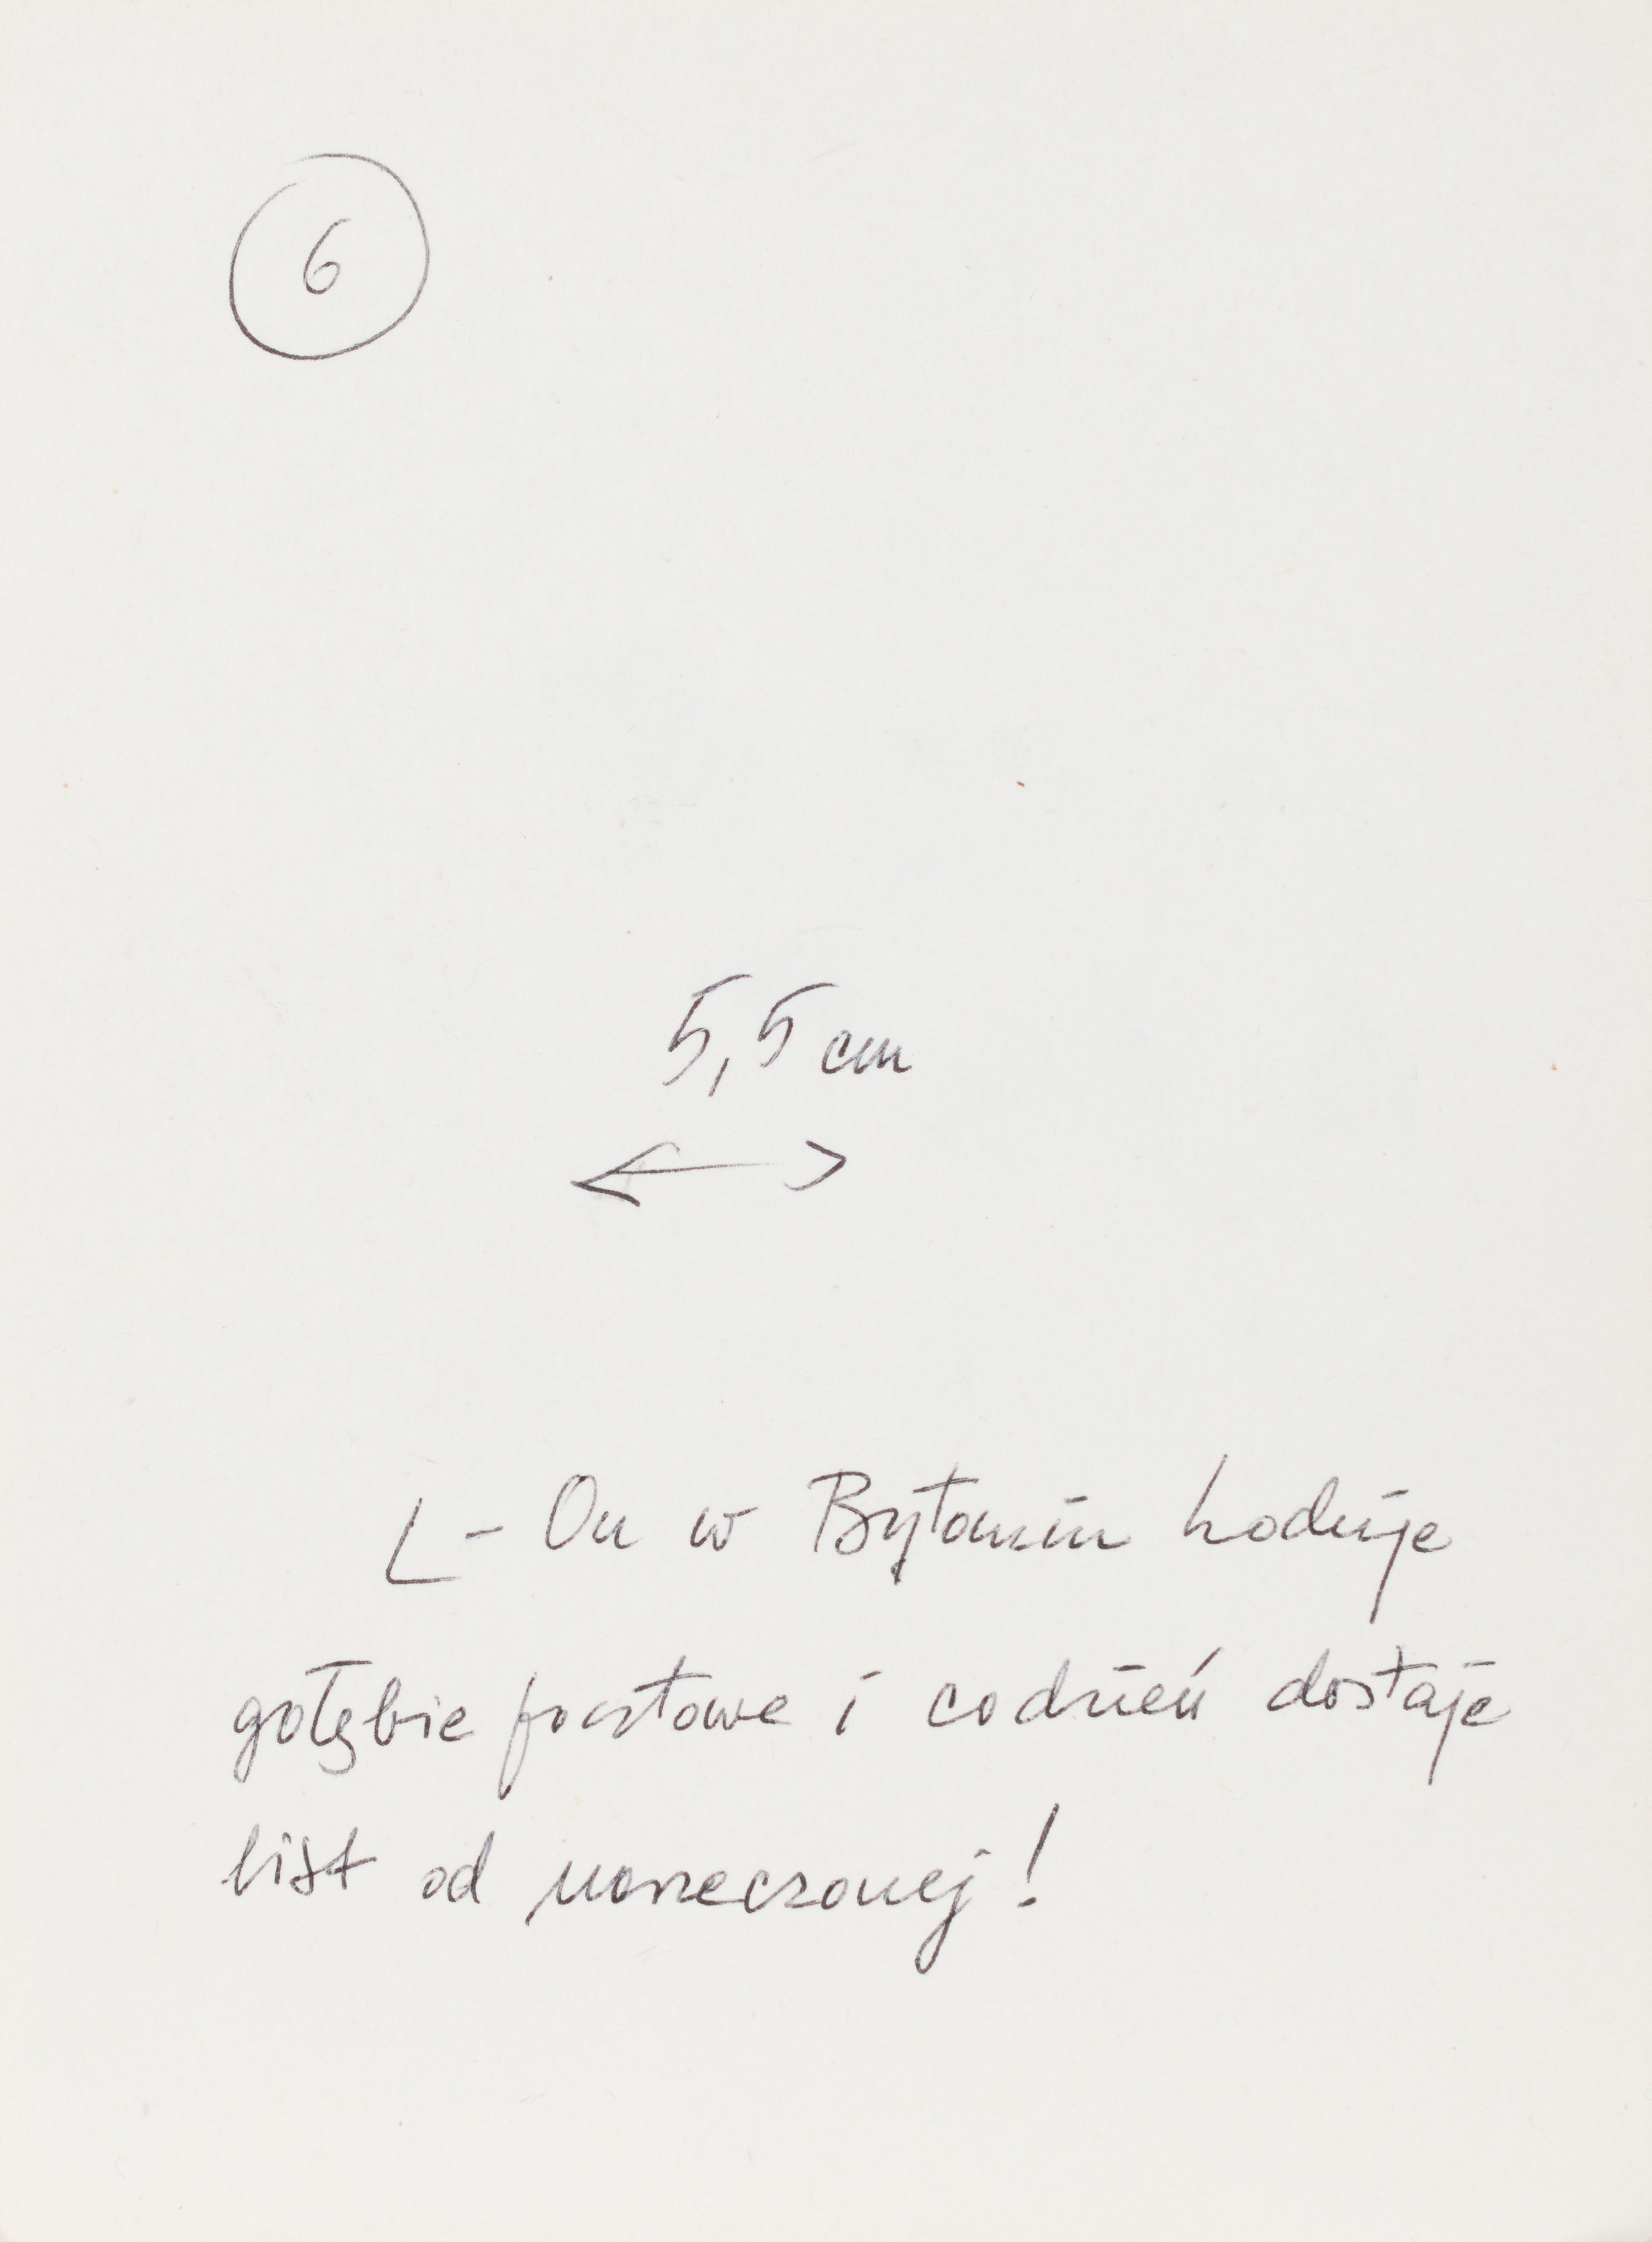 6
5,5 cm
- On w Bytomiu hoduje
gołębie pocztowe i codzień dostaje
list od narzeczonej!